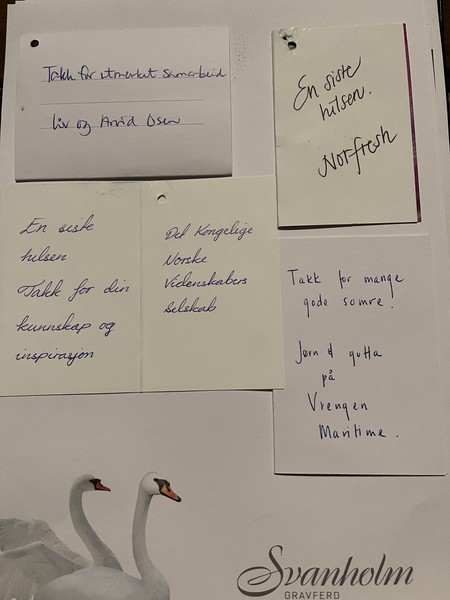 Takk for utmerket samarbeid
Liv og Arvid Osen
En siste
hilsen.
Norfresh
En siste
hilsen
Takk for din
kunnskap og
inspirasjon
Det Kongelige
Norske
Videnskabers
Selskab
Takk for mange
gode somre!
Jørn & gutta
på
Vrengen
Maritime.
Svanholm
GRAVFERD